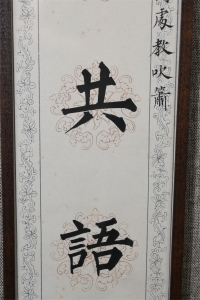 處教吹簫
共語